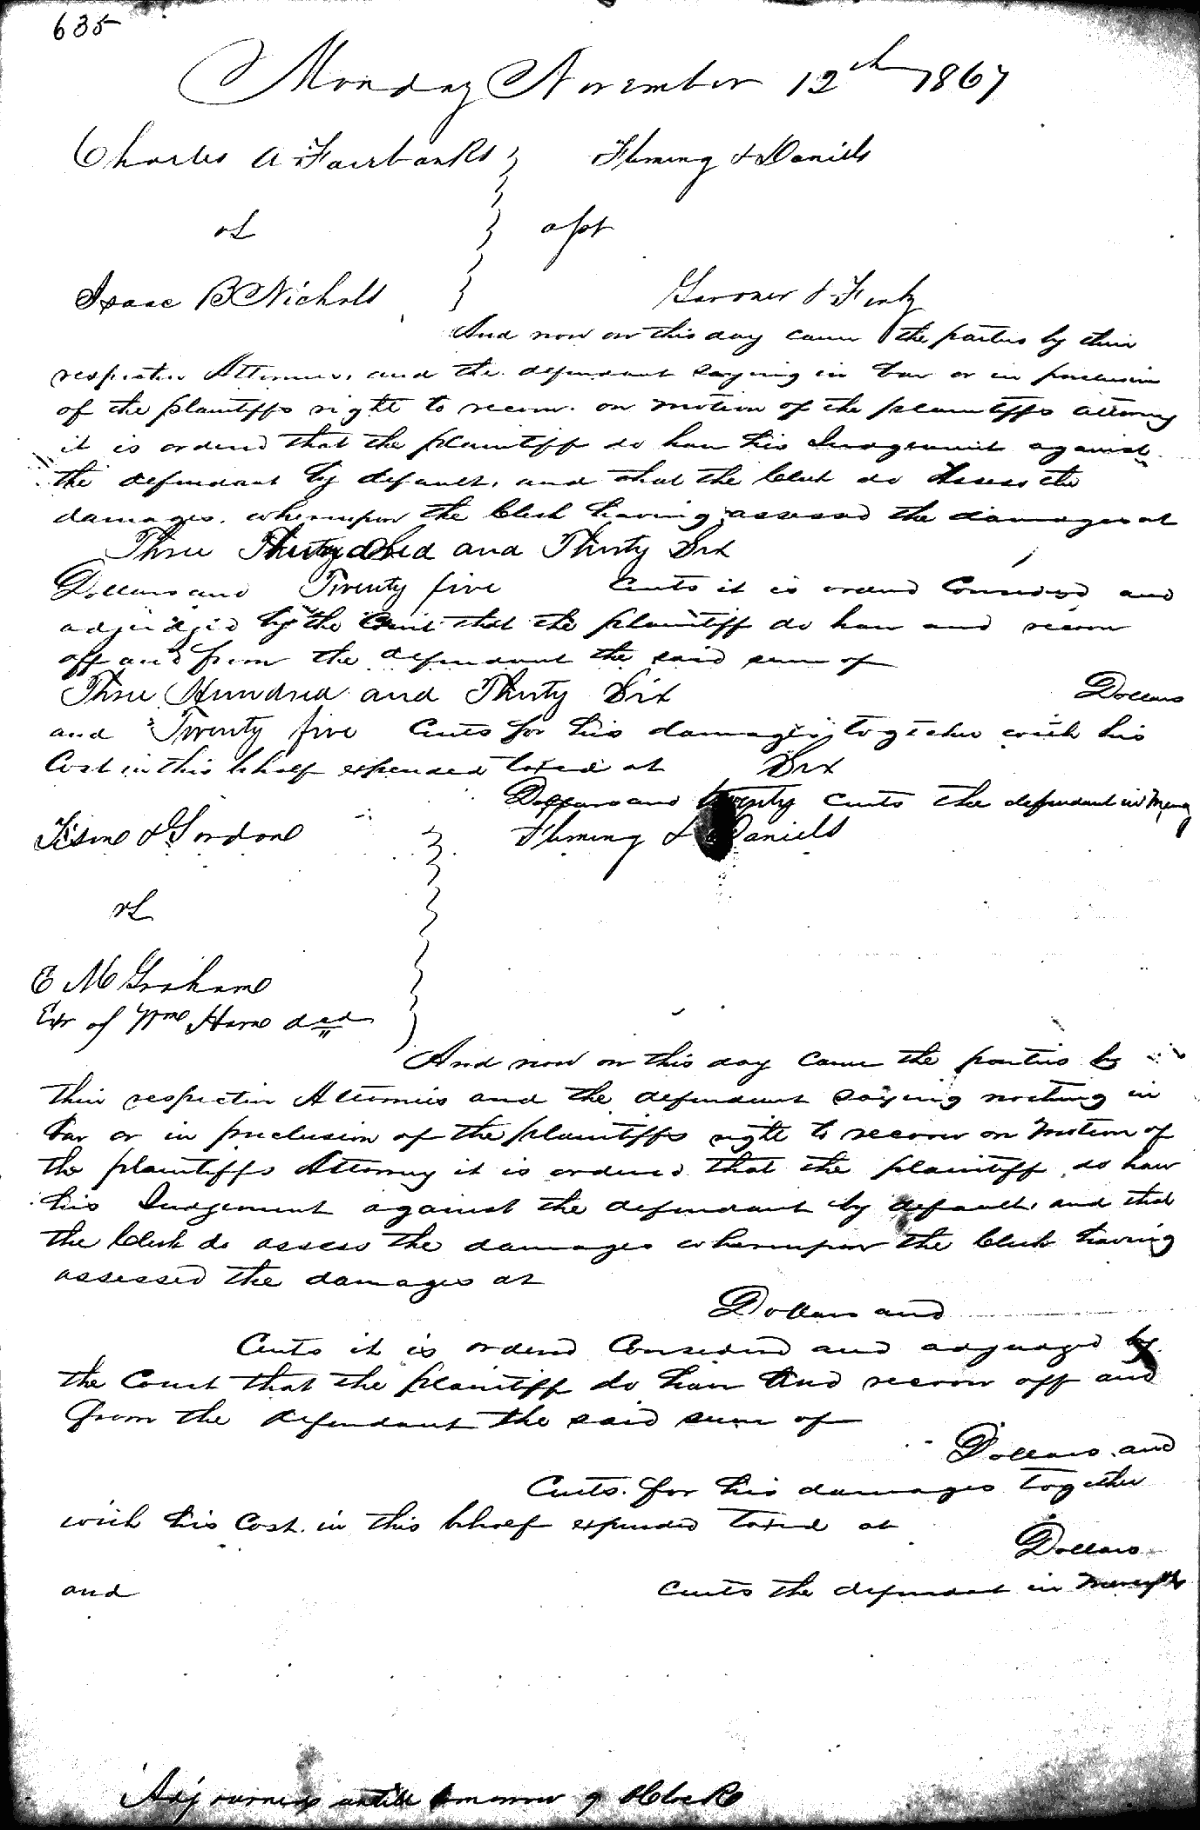 635
Monday November 12th 1867
Charles A Fairbanks Fleming & Daniels
vs apt
Isaac B Nichols Gardner &
And now on this day came the parties by their
respective Attornies, and the defendant saying in bar or in preclusion
of the plaintiffs right to recover. on motion of the plaintiffs attorney
it is ordered that the plaintiff do have his Judgement against
the defendant by default, and that the Clerk do Assess the
damages. whereupon the Clerk having assessed the damages at
Three and Thirty Six
Dollars and Twenty five Cents it is ordered Considered and
adjudged by the Court that the plaintiff do have and recover
off and from the defendant the said sum of
Three Hundred and Thirty Six Dollars
and Twenty five Cents for his damages together with his
Cost in this behalf expended taxed at Six
Dollars and twenty cents the defendant in Mercy
& Gordon Fleming & Daniels
vs
E M Graham
Exr of Wm Horne decd
And now on this day Came the parties by
their respective Attornies and the defendant saying nothing in
bar or in preclusion of the plaintiffs right to recover on Motion of
the plaintiffs Attorney it is ordered that the plaintiff do have
his Judgement against the defendant by default, and that
the Clerk do assess the damages whereupon the Clerk having
assessed the damages at
Dollars and
Cents it is ordered Considered and adjudged by
the Court that the plaintiff do have And recover off and
from the defendant the said sum of
Dollars and
Cents for his damages together
with his Cost in this behalf expended taxed at
Dollars
and cents the defendant in mercy &c
Adjourned untill tomorrow 9 OClock